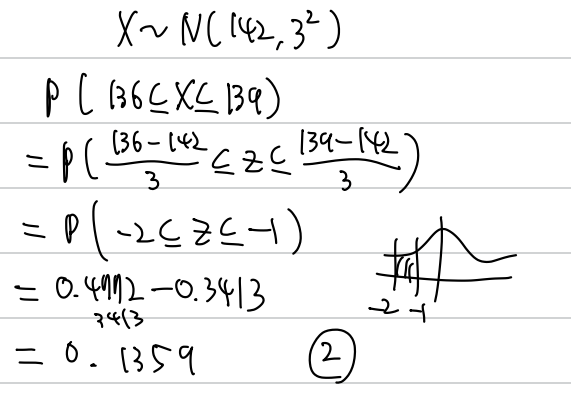 X~N(142,3²)
P(136≤X≤139)
=P((136-142)/3≤Z≤(139-142)/3)
=P(-2≤Z≤-1)
-2 -1
=0.4772-0.3413
3413
=0.1359 ②